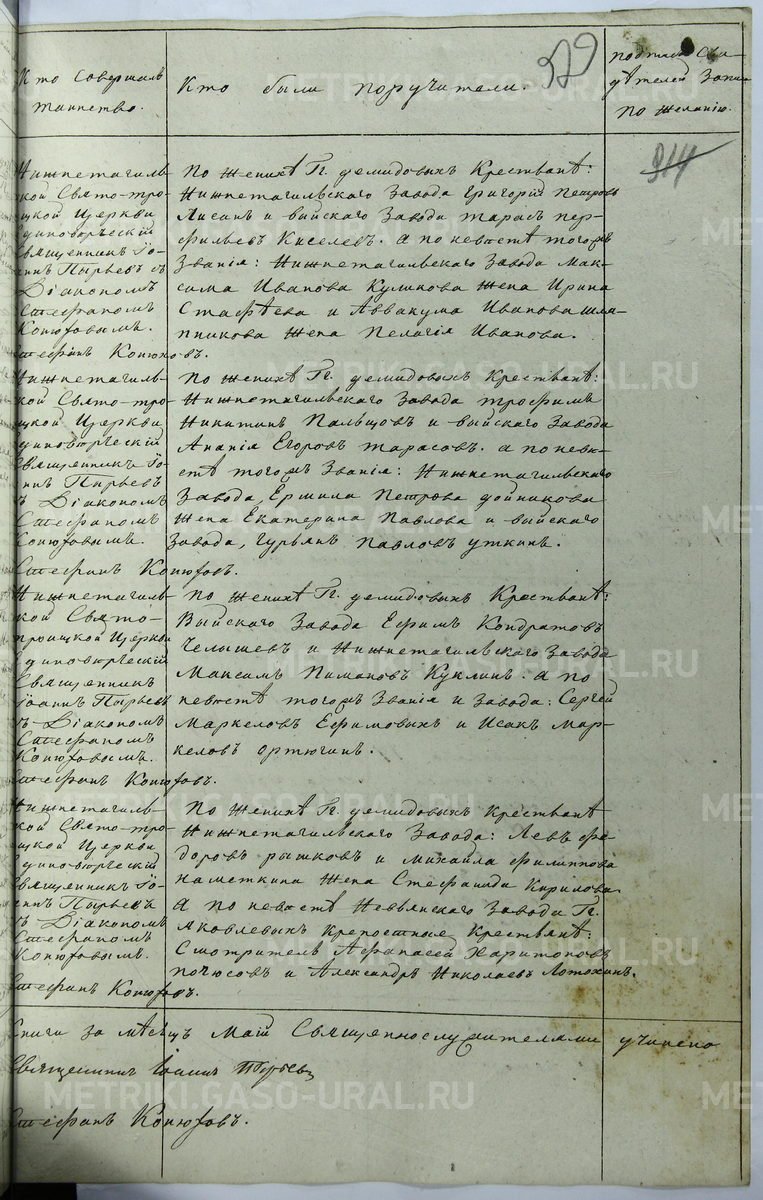 Кто совершалъ таинство.
Кто были поручители.
529
подписи Сви-
дѣтелей Запи
по желанію.
314
Нижнетагиль-
ской Свято-тро-
ицкой Церкви
Единовѣрческій
Священникъ Іо-
аннъ Пырьевъ съ
Діакономъ
Стефаномъ
Конюховымъ.
Стефанъ Конюховъ.
По женихѣ Гг. демидовыхъ Крестьянѣ:
Нижнетагильскаго Завода Григорій Петровъ
Лисинъ и выйскаго Завода тарасъ пер-
фильевъ Киселевъ. а по невѣстѣ тогожъ
Званія: Нижнетагильскаго Завода Мак-
сима Иванова Куликова Жена Ирина
Стафѣева и Аввакума Иванова шля-
пникова Жена Пелагія Иванова.
Нижнетагиль-
ской Свято-тро-
ицкой Церкви
Единовѣрческій
Священникъ Іо-
аннъ Пырьевъ
съ Діакономъ
Стефаномъ
Конюховымъ.
Стефанъ Конюховъ.
По женихѣ Гг. демидовыхъ Крестьянѣ:
Нижнетагильскаго Завода трофимъ
Никитинъ Пальцовъ и выйскаго Завода
Ананія Егоровъ тарасовъ. а по невѣ-
стѣ тогожъ Званія: Нижнетагильскаго
Завода, Ермила Петрова дойникова
Жена Екатерина Павлова и выйскаго
Завода, гурьянъ Павловъ уткинъ.
Нижнетагиль-
ской Свято-
троицкой Церкви
Единовѣрческій
Священникъ
Іоаннъ Пырьевъ
съ Діакономъ
Стефаномъ
Конюховымъ.
Стефанъ Конюховъ.
По женихѣ Гг. демидовыхъ Крестьянѣ:
Выйскаго Завода Ефимъ Кондратовъ
Челышевъ и Нижнетагильскаго Завода
Максимъ Пимановъ Куклинъ. а по
невѣстѣ тогожъ Званія и Завода: Сергей
Маркеловъ Ефимовыхъ и Исакъ Мар-
келовъ ортюгинъ.
Нижнетагиль-
ской Свято-тро-
ицкой Церкви
Единовѣрческій
Священникъ Іо-
аннъ Пырьевъ
съ Діакономъ
Стефаномъ
Конюховымъ.
Стефанъ Конюховъ.
По женихѣ Гг. демидовыхъ Крестьянѣ
Нижнетагильскаго Завода: Левъ фе-
доровъ рышковъ и михайла филиппова
наметкина Жена Стефанида Кирилова
А по невѣстѣ Невьянскаго Завода Гг.
Яковлевыхъ Крепостные Крестьянѣ:
Смотритель Афанасей Харитоновъ
почюсовъ и Александръ Николаевъ Лотохинъ.
Книги За мѣсяцъ Маій Священнослужителями учинено
Священникъ Іоаннъ Пырьевъ
Стефанъ Конюховъ.
METRIKI.GASO-URAL.RU